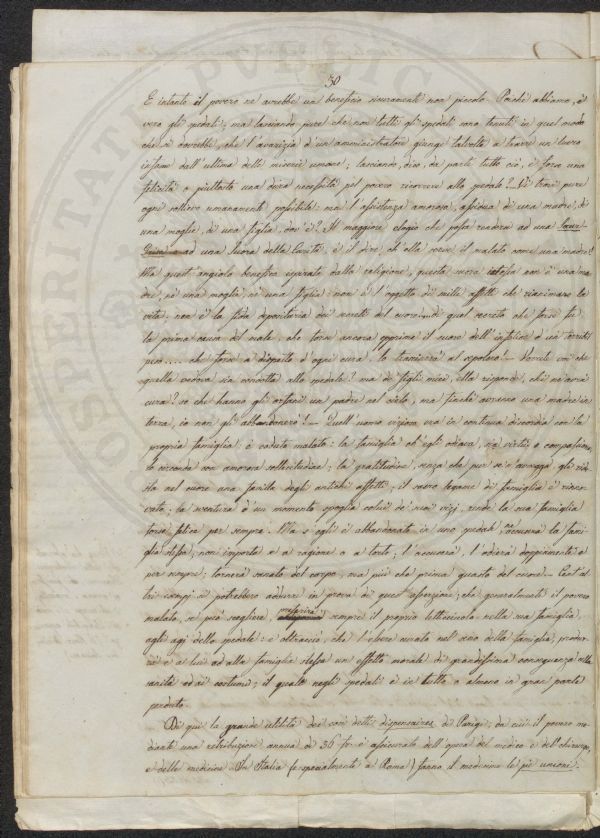 30
E intanto il povero ne avrebbe un beneficio sicuramente non piccolo. Perchè abbiamo, è
vero gli spedali; ma lasciando pure che non tutti gli spedali sono tenuti in quel modo
che si dovrebbe, che l'avarizia d'un amministratore giunge talvolta a trarre un lucro
infame dall'ultima delle miserie umane, lasciando, dico, da parte tutto ciò, è forse una
felicità o piuttosto una dura necessità pel povero ricorrere allo spedale? Vi trovi pure
ogni sollievo umanamente possibile: ma l'assistenza amorosa, assidua di una madre, di
una moglie, di una figlia, dov'è? Il maggiore elogio che possa rendersi ad una
ad una suora della Carità, è il dire, ch'ella serve il malato come una madre.
Ma quest'angiolo benefico ispirato dalla religione, questa suora istessa non è una ma-
dre, nè una moglie, nè una figlia: non è l'oggetto di mille affetti che rianimano la
vita: non è la fida depositaria dei secreti del cuore, di quel secreto che forse fu
la prima causa del male, che forse ancora opprime il cuore dell'infelice d'un terribil
peso.... che forse a dispetto d'ogni cura, lo trascinerà al sepolcro! Volete voi che
quella vedova sia condotta allo spedale? ma de' figli miei, ella risponde, chi ne avrà
cura? so che hanno gli orfani un padre nel cielo, ma finchè avranno una madre in
terra, io non gli abbandonerò! — Quell'uomo vizioso era in continua discordia con la
propria famiglia: è caduto malato: la famiglia ch'egli odiava, sia virtù, o compassione,
lo circonda con amorosa sollecitudine; la gratitudine, senza che pur se n'avvegga gli ride-
sta nel cuore una favilla degli antichi affetti, il sacro legame di famiglia è rinno-
vato; la sventura in un momento spoglia colui de' suoi vizj, rende la sua famiglia
forse felice per sempre. Ma s'egli è abbandonato in uno spedale, accuserà la fami-
glia stessa, non importa se a ragione o a torto; l'accuserà, l'odierà doppiamente e
per sempre; tornerà sanato del corpo, ma più che prima guasto del cuore. Cent'al-
tri esempj si potrebbero addurre in prova di quest'asserzione; che generalmente il povero
malato, se può scegliere, preferirà sempre il proprio letticciuolo nella sua famiglia,
agli agj dello spedale: e oltracciò, che l'essere curato nel seno della famiglia, produr-
rà e a lui ed alla famiglia stessa un effetto morale di grandissima conseguenza alla
sanità ed ai costumi; il quale negli spedali è in tutto o almeno in gran parte
perduto.
Di qui la grande utilità dei così detti dispensaires di Parigi; da cui il povero me-
diante una retribuzione annua di 36 fr. è assicurato dell'opera del medico e del chirurgo,
e delle medicine. In Italia (e specialmente a Roma) fanno il medesimo le pie unioni.